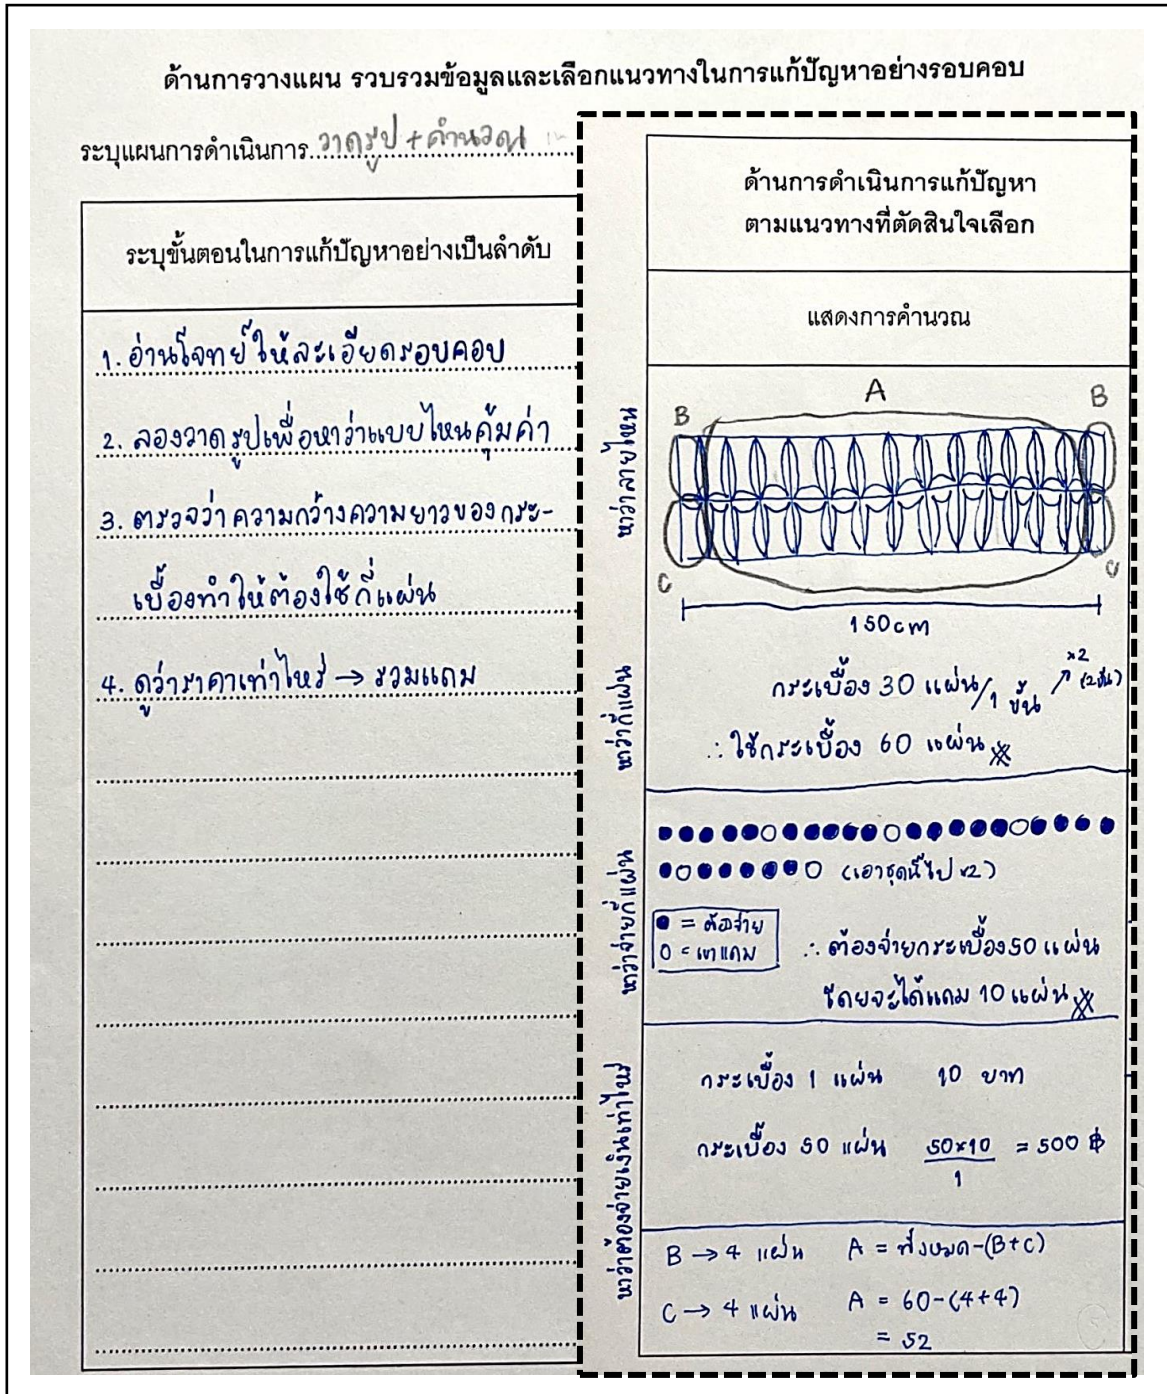 ด้านการวางแผน รวบรวมข้อมูลและเลือกแนวทางในการแก้ปัญหาอย่างรอบคอบ
ระบุแผนการดำเนินการ วาดรูป + คำนวณ
ระบุขั้นตอนในการแก้ปัญหาอย่างเป็นลำดับ
1. อ่านโจทย์ให้ละเอียดรอบคอบ
2. ลองวาดรูปเพื่อหาว่าแบบไหนคุ้มค่า
3. ตรวจว่าความกว้างความยาวของกระ-
เบื้องทำให้ต้องใช้กี่แผ่น
4. ดูว่าราคาเท่าไหร่ → รวมแถม
ด้านการดำเนินการแก้ปัญหา
ตามแนวทางที่ตัดสินใจเลือก
แสดงการคำนวณ
หาว่าลายไหน
B A B
C C
150cm
หาว่ากี่แผ่น
กระเบื้อง 30 แผ่น/1 ชั้น ×2 (2ชั้น)
∴ ใช้กระเบื้อง 60 แผ่น
หาว่าจ่ายกี่แผ่น
(เอาชุดนี้ไป ×2)
● = ต้องจ่าย
○ = เขาแถม
∴ ต้องจ่ายกระเบื้อง 50 แผ่น
โดยจะได้แถม 10 แผ่น
หาว่าต้องจ่ายเงินเท่าไหร่
กระเบื้อง 1 แผ่น 10 บาท
กระเบื้อง 50 แผ่น 50×10/1 = 500 ฿
B → 4 แผ่น A = ทั้งหมด-(B+C)
C → 4 แผ่น A = 60-(4+4)
= 52